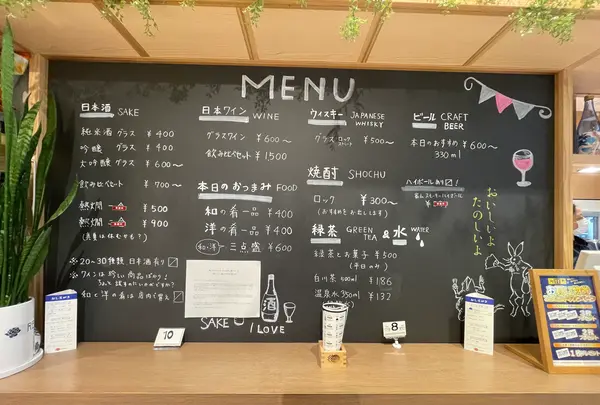 MENU
日本酒 SAKE
純米酒 グラス ¥400
吟醸 グラス ¥400
大吟醸 グラス ¥600〜
飲み比べセット ¥700〜
熱燗 ¥500
熱燗 ¥900
※20〜30種類 日本酒有り
※ワインは珍しい商品ばかり!
※和と洋の肴は店内で替え
日本ワイン WINE
グラスワイン ¥600〜
飲み比べセット ¥1500
本日のおつまみ FOOD
和の肴一品 ¥400
洋の肴一品 ¥400
和・洋 三点盛 ¥600
SAKE
I LOVE
ウィスキー JAPANESE WHISKY
グラス ロック ¥500〜
焼酎 SHOCHU
ロック ¥300〜
(おすすめをお出しします)
緑茶 GREEN TEA & 水 WATER
緑茶とお菓子 ¥500
(平日のみ)
白川茶 500ml ¥186
温泉水 350ml ¥132
ビール CRAFT BEER
本日のおすすめ ¥600〜
330ml
ハイボールあり〼!
おいしいよ
たのしいよ
10
8